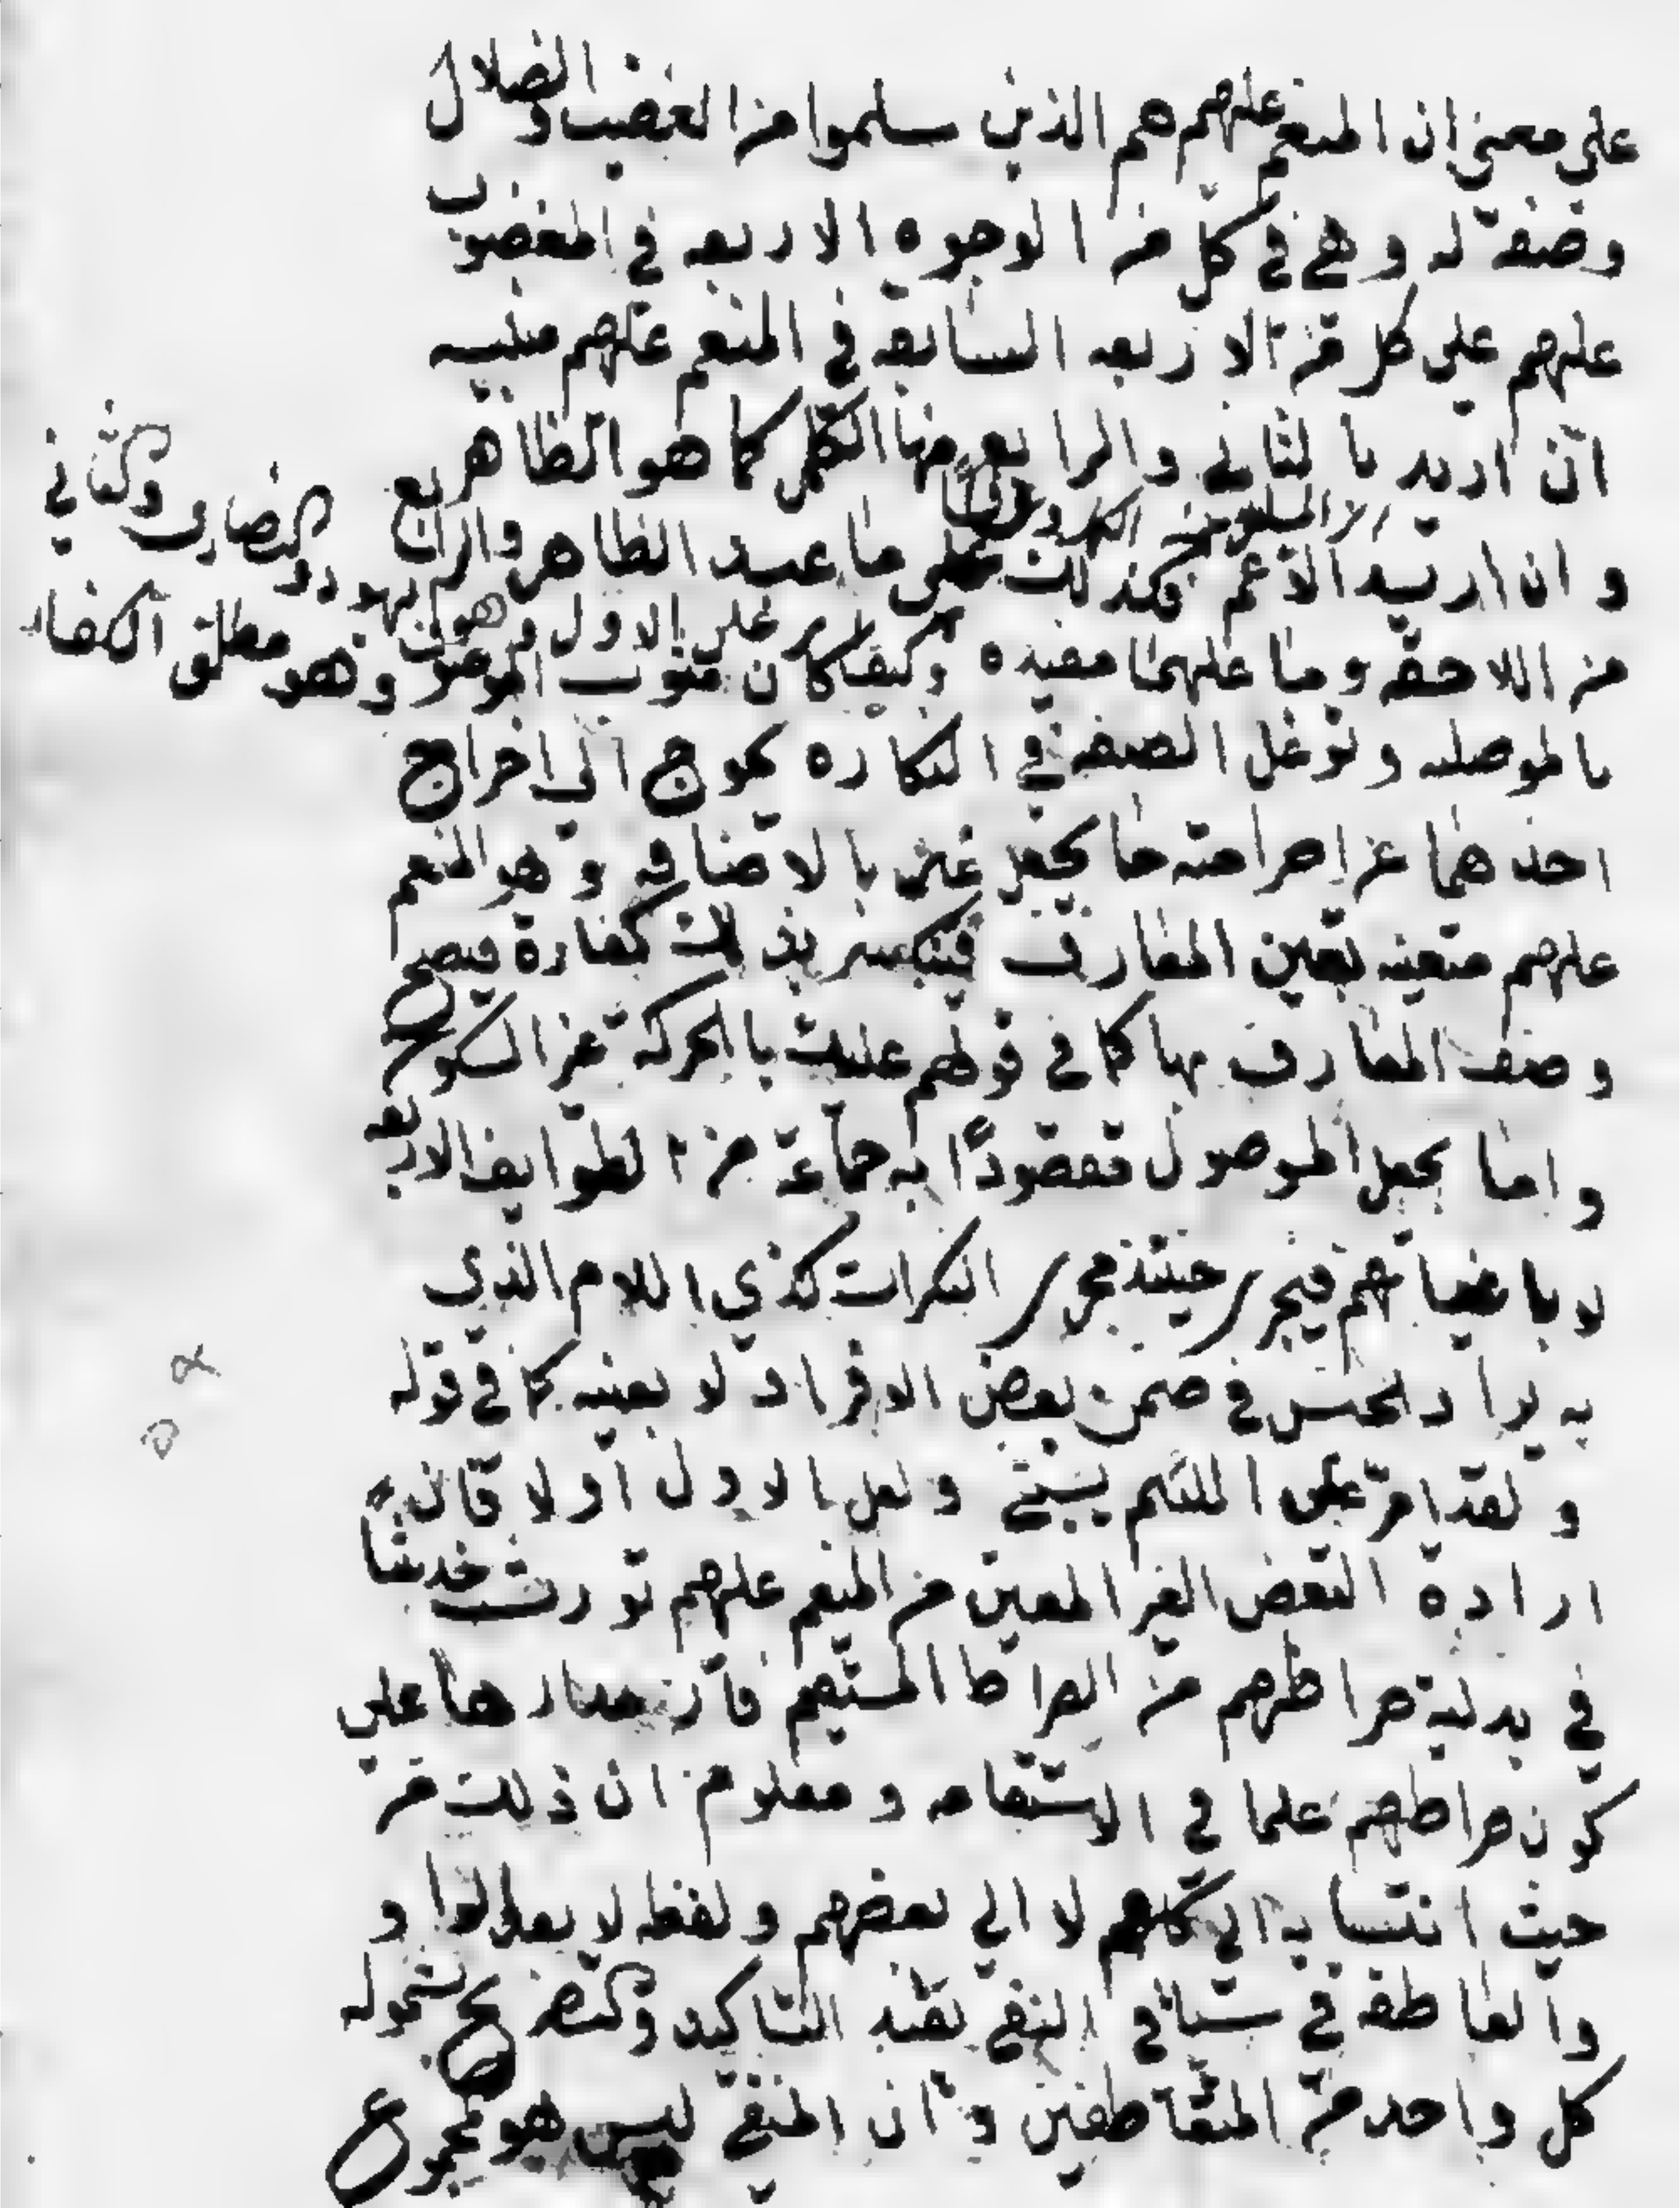 على معنى ان المنعم عليهم هم الذين سلموا من الغضب والضلال
وصفة له وهي في كل من الوجوه الاربعه في المغضوب
عليهم على كل من الاربعه السابقه في المنعم عليهم مبنيه
ان اريد بالثاني والرابع منها الكل كما هو الظاهر
وان اريد الاعم فكذلك على ما عدا الظاهر والرابع
من اللاحقه وما عليهما مقيده وكيف كان
بالموصله وتوغل الصفة في النكاره يحوج الى اخراج
احدهما عن صرافته اما بجعل غير بالاضافه وهو المنعم
عليهم متعينه تعين المعارف فينكسر بذلك نكارة فيصح
وصف المعارف بها كما في قولهم عليك بالحركة غير السكون
واما بجعل الموصول مقصودًا به جماعة من الطوايف الاربعه
لا باعيانهم فيجرى حينئذ مجرى النكرات كذي اللام الذي
به يراد الجنس في ضمن بعض الافراد لا بعينه كما في قوله
ولقد امر على اللئيم يسبني ولعل الاول اولا فان
ارادة البعض الغير المعين من المنعم عليهم تورث خدشا
في بدلية صراطهم من الصراط المستقيم فان مدارها على
كون صراطهم علما في الاستقامه ومعلوم ان ذلك من
حيث انتسابه الى كلهم لا الى بعضهم ولفظه لا بعد الواو
والعاطفه في سياق النفي تفيد التاكيد والتصريح بشموله
كل واحد من المتعاطفين وان المنفي ليس هو مجموع
اليهود والنصارى والثاني
وهو مطلق الكفار